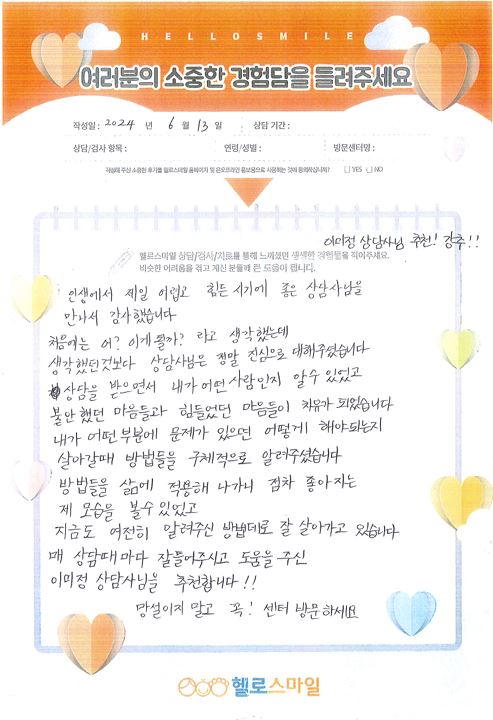 HELLOSMILE
여러분의 소중한 경험담을 들려주세요
작성일 : 2024 년 6 월 13 일 상담 기간 :
상담/검사 항목 : 연령/성별 : 방문센터명 :
작성해 주신 소중한 후기를 헬로스마일 홈페이지 및 온오프라인 홍보용으로 사용하는 것에 동의하십니까? □ YES □ NO
이미정 상담사님 추천! 강추!!
헬로스마일 상담/검사/치료를 통해 느끼셨던 생생한 경험담을 적어주세요.
비슷한 어려움을 겪고 계신 분들께 큰 도움이 됩니다.
인생에서 제일 어렵고 힘든 시기에 좋은 상담사님을
만나서 감사했습니다
처음에는 어? 이게 뭘까? 라고 생각했는데
생각했던것보다 상담사님은 정말 진심으로 대해주였습니다
상담을 받으면서 내가 어떤 사람인지 알수 있었고
불안했던 마음들과 힘들었던 마음들이 치유가 되었습니다
내가 어떤부분에 문제가 있으면 어떻게 해야되는지
살아갈때 방법들을 구체적으로 알려주셨습니다
방법들을 삶에 적용해 나가니 점차 좋아지는
제 모습을 볼수있었고
지금도 여전히 알려주신 방법데로 잘 살아가고 있습니다
매 상담때마다 잘들어주시고 도움을 주신
이미정 상담사님을 추천합니다!!
망설이지 말고 꼭! 센터 방문하세요
헬로스마일